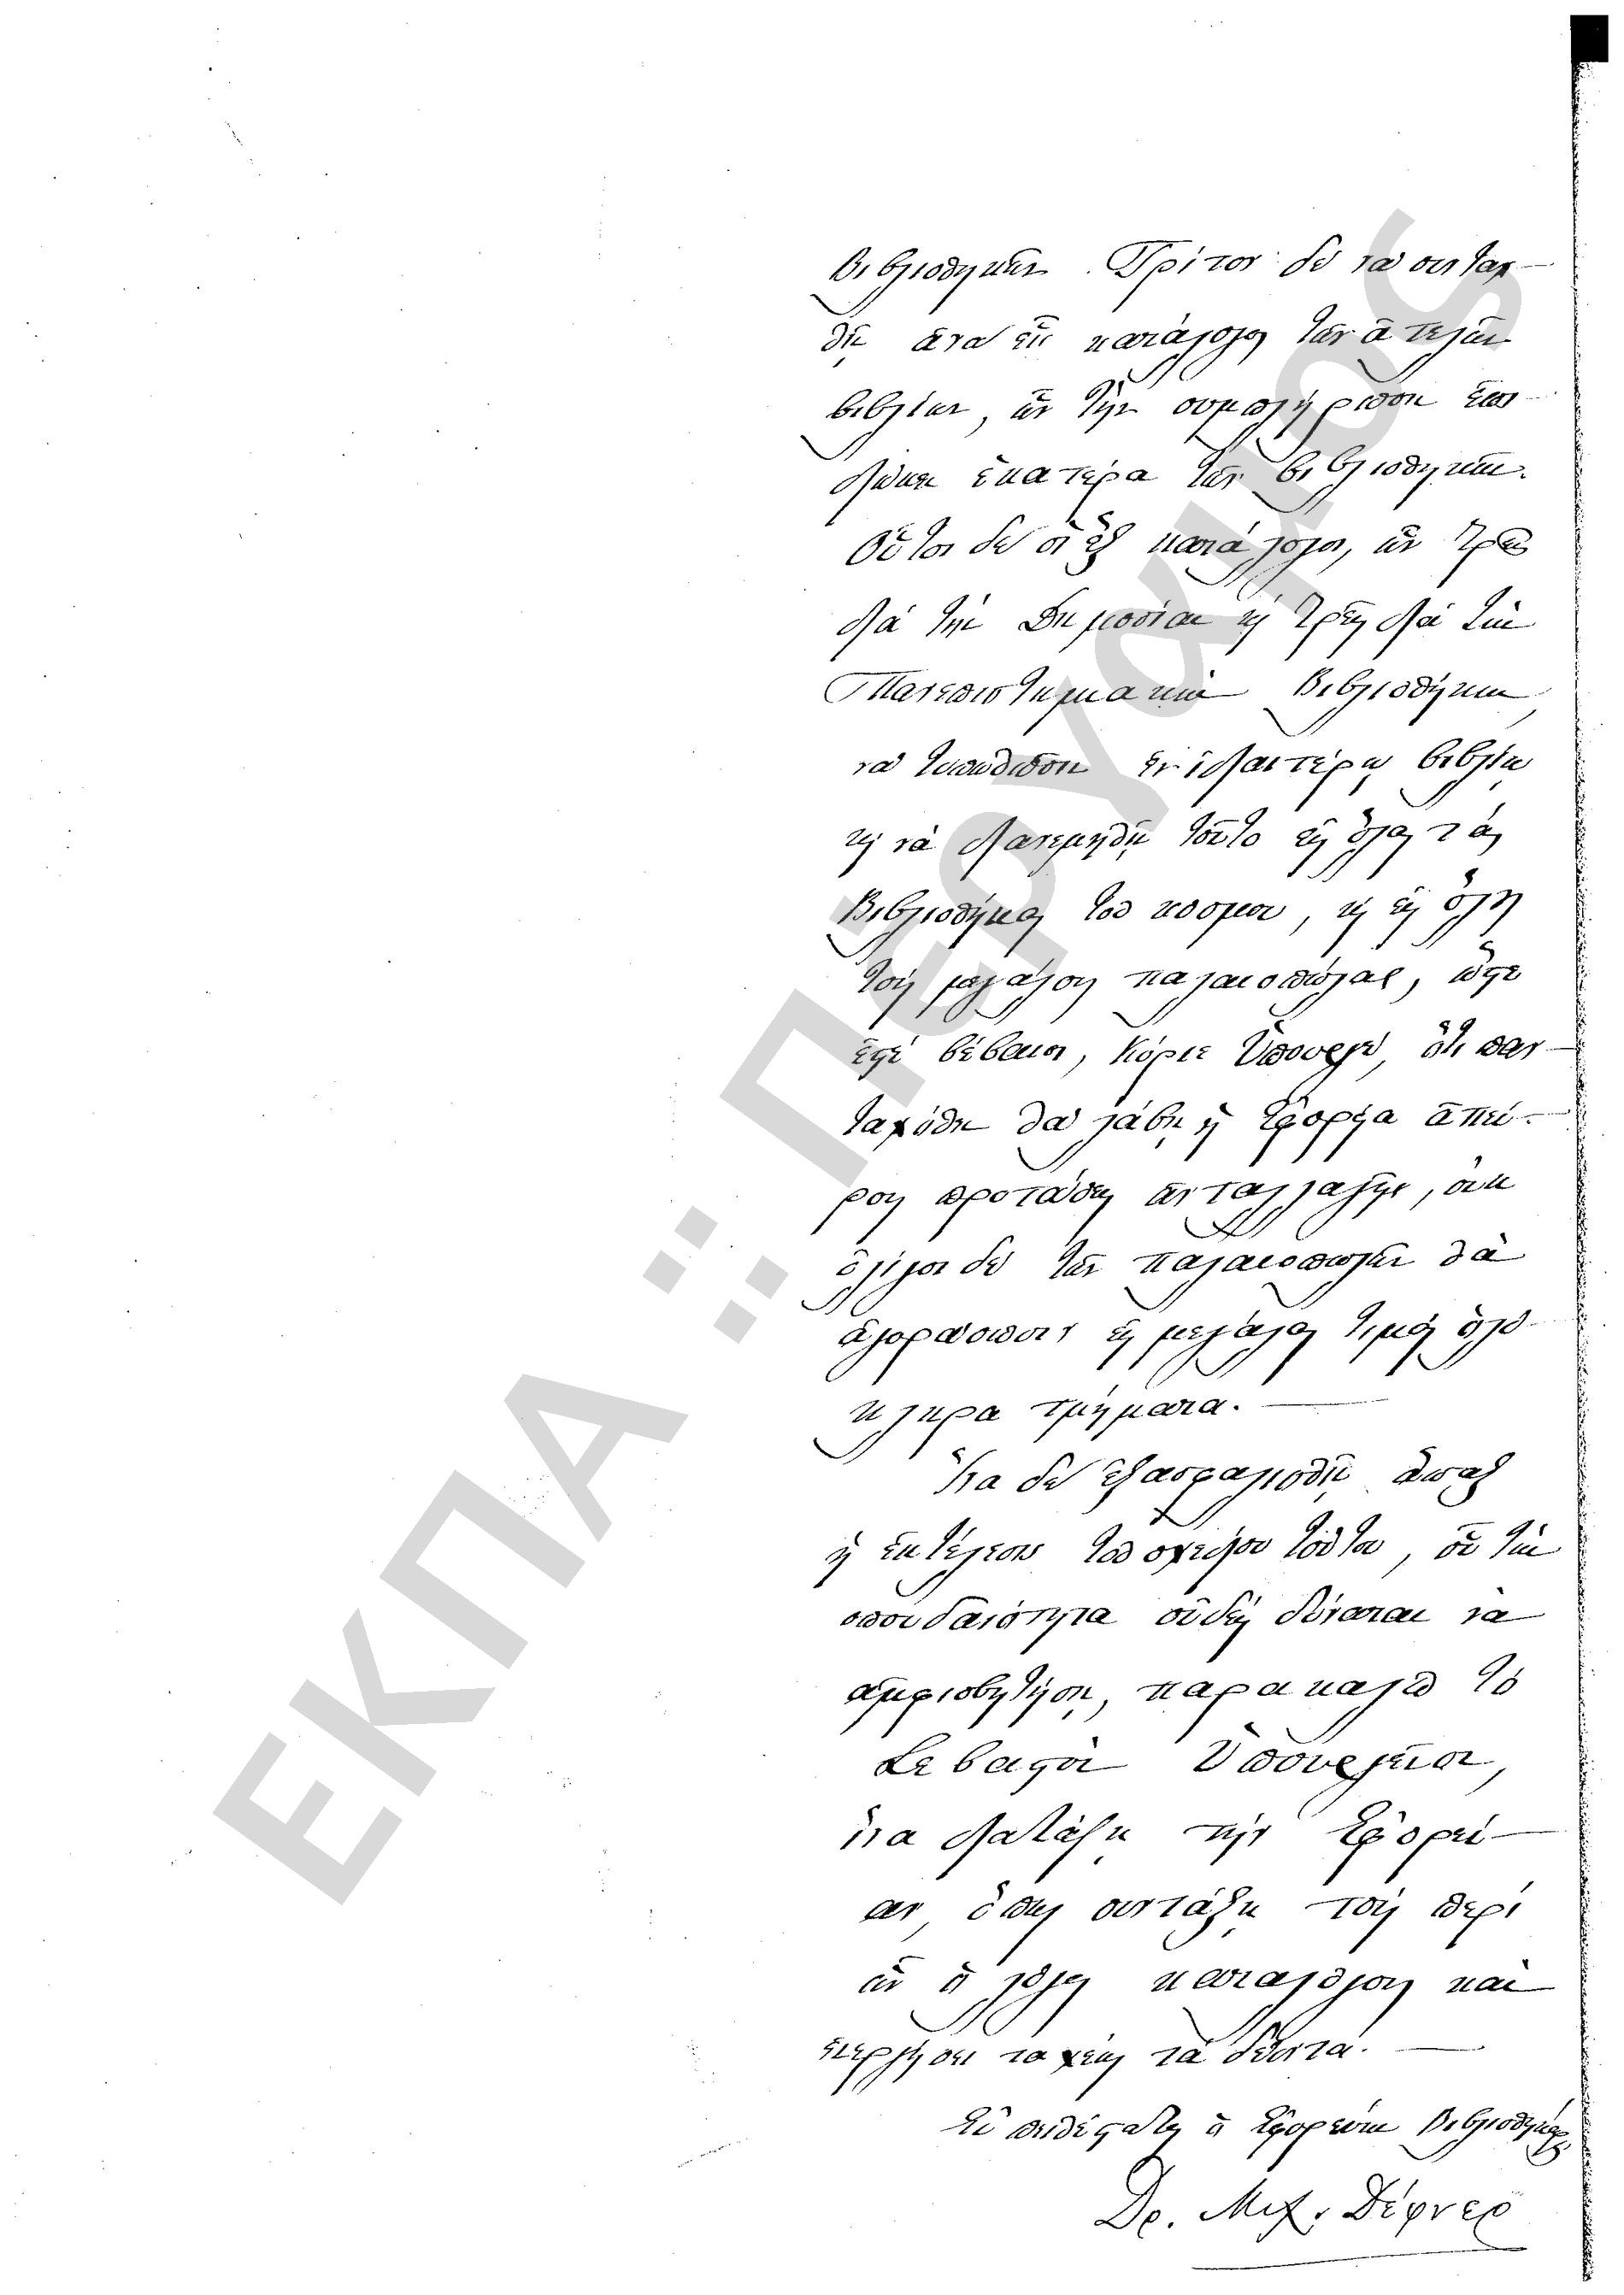 βιβλιοθηκῶν. Τρίτον δὲ νὰ συνταχ-
θῇ ἀνὰ εἷς κατάλογος τῶν ἀτελῶν
βιβλίων, ὧν τὴν συμπλήρωσιν ἐπι-
διώκει ἑκατέρα τῶν βιβλιοθηκῶν.
Οὗτοι δὲ οἱ ἓξ κατάλογοι, ὧν τρεῖς
διὰ τὴν Δημοσίαν καὶ τρεῖς διὰ τὴν
Πανεπιστημιακὴν Βιβλιοθήκην
νὰ τυπωθῶσιν ἐν ἰδιαιτέρῳ βιβλίῳ
καὶ νὰ διανεμηθῇ τοῦτο εἰς ὅλας τὰς
Βιβλιοθήκας τοῦ κόσμου, καὶ εἰς ὅλους
τοὺς μεγάλους παλαιοπώλας, ὥστε
ἔστέ βέβαιοι, Κύριε Ὑπουργέ, ὅτι παν-
ταχόθεν θὰ λάβῃ ἡ Ἐφορεία ἀπεί-
ρους προτάσεις ἀνταλλαγῆς, οὐκ
ὀλίγοι δὲ τῶν παλαιοπωλῶν θὰ
ἀγοράσωσιν εἰς μεγάλας τιμὰς ὁλό-
κληρα τμήματα.
Ἵνα δὲ ἐξασφαλισθῇ ἅπαξ
ἡ ἐκτέλεσις τοῦ σχεδίου τούτου, οὗ τὴν
σπουδαιότητα οὐδεὶς δύναται νὰ
ἀμφισβητήσῃ, παρακαλῶ τὸ
Σεβαστὸν Ὑπουργεῖον,
ἵνα διατάξῃ τὴν Ἐφορεί-
αν, ὅπως συντάξῃ τοὺς περὶ
ὧν ὁ λόγος καταλόγους καὶ
ἐνεργήσῃ ταχέως τὰ δέοντα.
Εὐπειθέστατος ὁ Ἐφορεύων Βιβλιοθηκάριος
Δρ. Μιχ: Δέφνερ